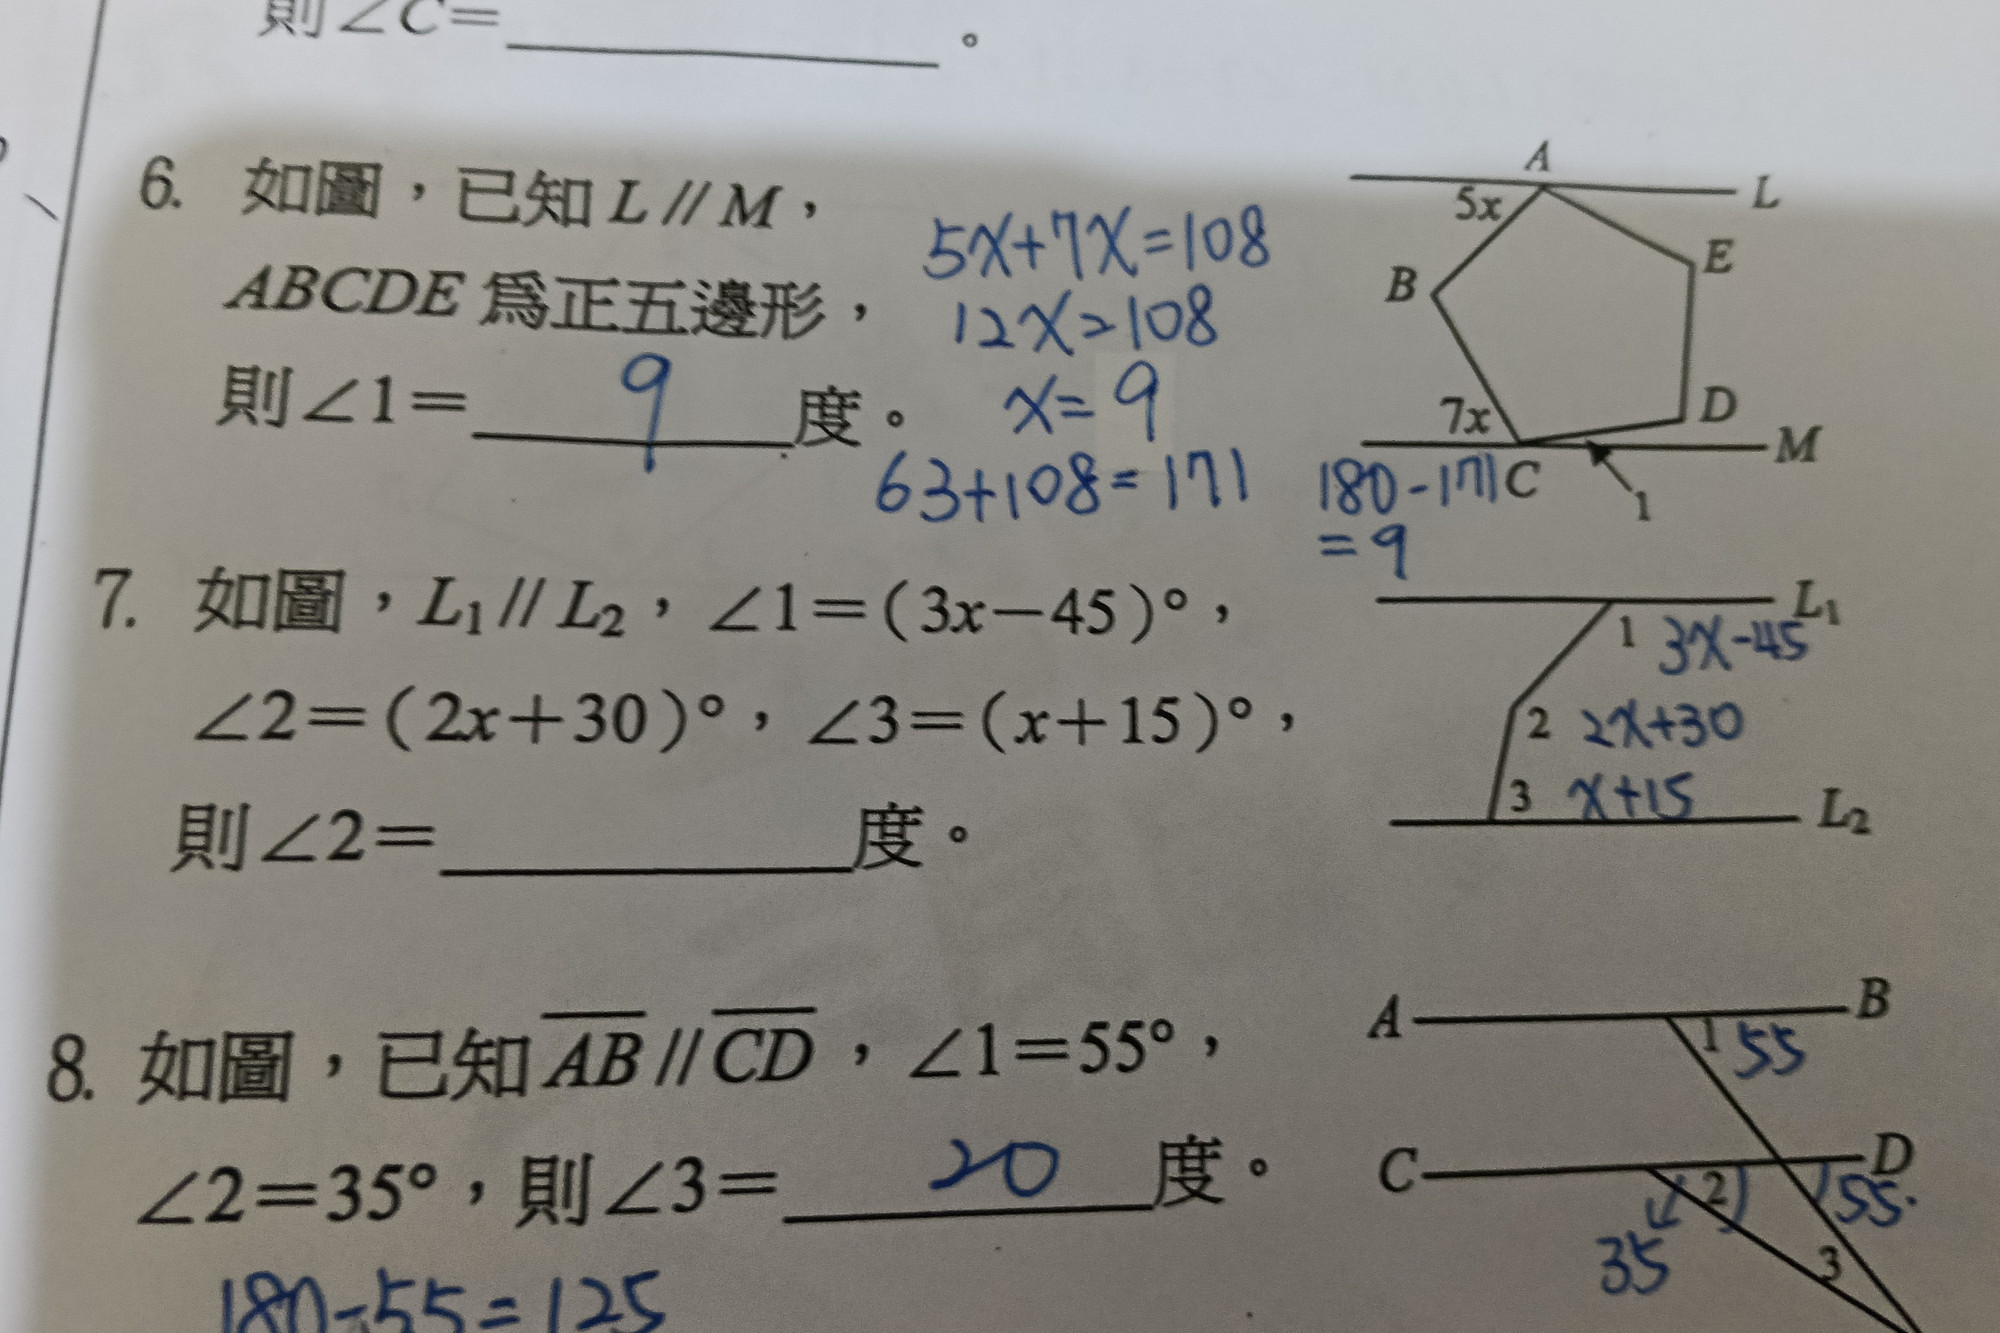 則∠C=。
6. 如圖，已知L∥M，
ABCDE為正五邊形，
則∠1=9度。
5x+7x=108
12x=108
x=9
63+108=171
180-171
=9
A
L
5x
E
B
D
7x
M
C
1
7. 如圖，L₁∥L₂，∠1=(3x-45)°，
∠2=(2x+30)°，∠3=(x+15)°，
則∠2=度。
L₁
1 3x-45
2 2x+30
3 x+15
L₂
8. 如圖，已知A̅B̅∥C̅D̅，∠1=55°，
∠2=35°，則∠3=20度。
180-55=125
A
B
1 55
C
D
2
55
35
3